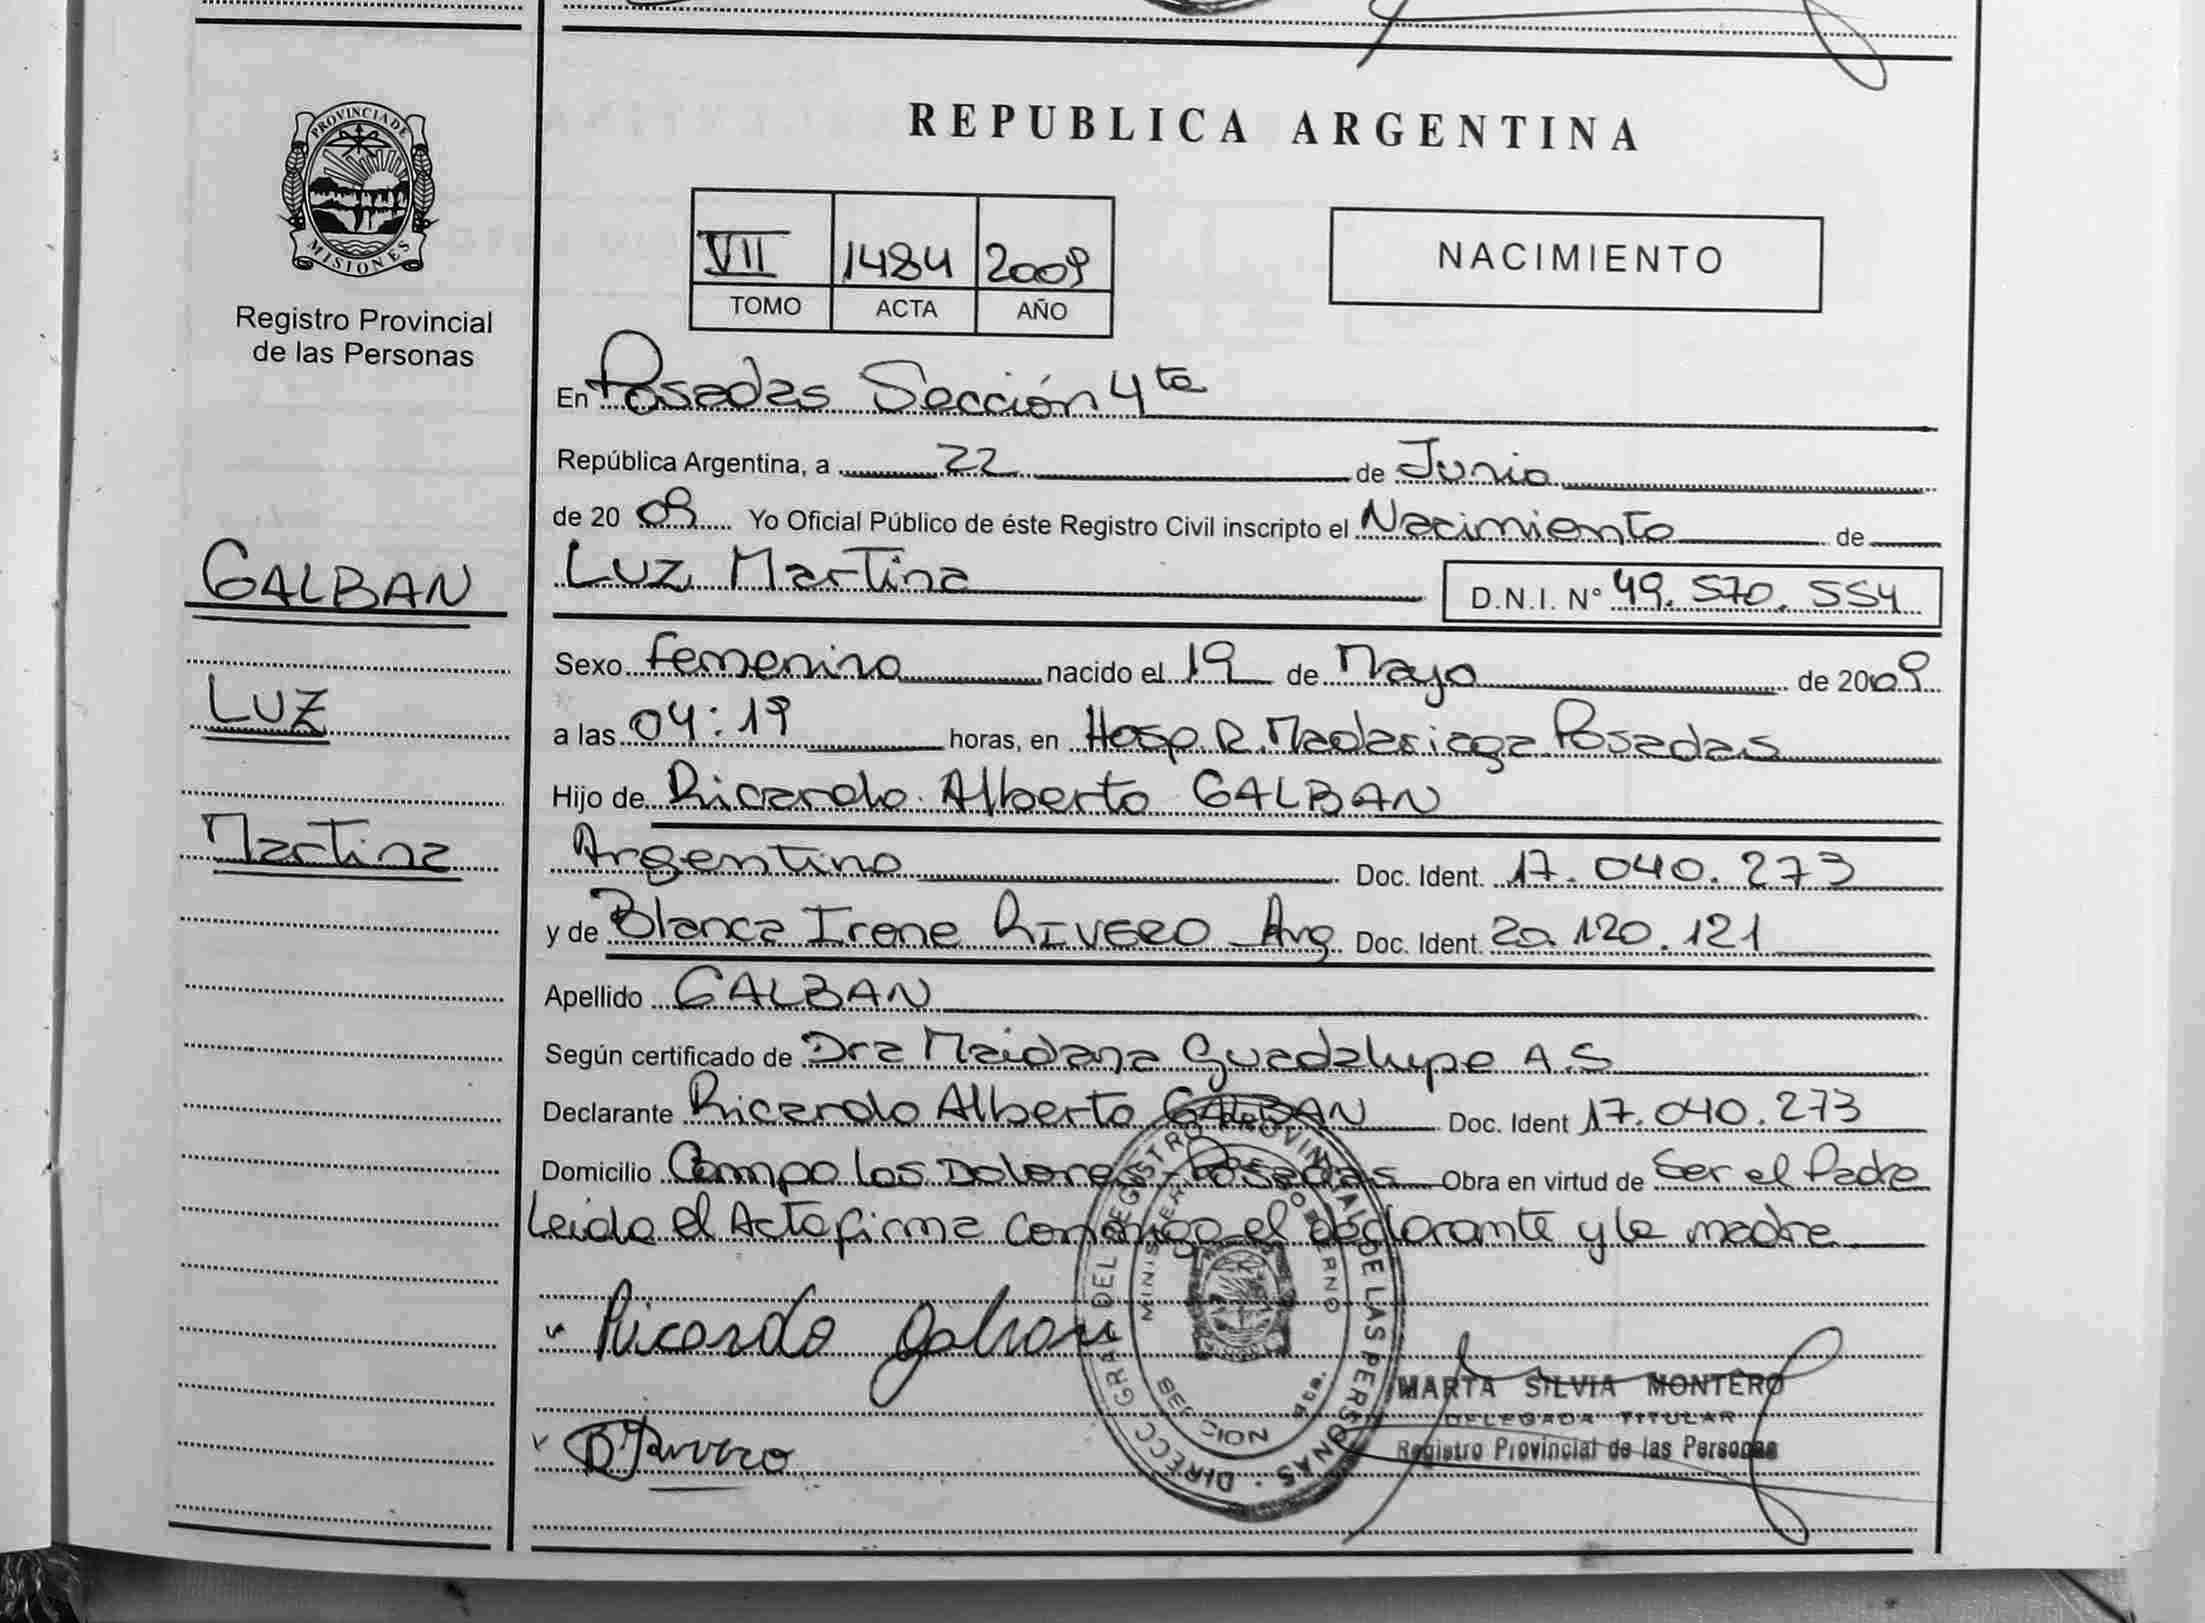 PROVINCIA DE
MISIONES
Registro Provincial
de las Personas
GALBAN
LUZ
Martina
REPUBLICA ARGENTINA
VII 1484 2009
TOMO ACTA AÑO
NACIMIENTO
En Posadas Sección 4ta
República Argentina, a 22 de Junio
de 20 09 Yo Oficial Público de éste Registro Civil inscripto el Nacimiento de
Luz Martina D.N.I. N° 49.570.554
Sexo femenino nacido el 19 de Mayo de 2009
a las 04:19 horas, en Hosp. R. Madariaga Posadas
Hijo de Ricardo Alberto GALBAN
Argentino Doc. Ident. 17.040.273
y de Blanca Irene RIVERO Arg. Doc. Ident. 20.120.121
Apellido GALBAN
Según certificado de Dra Maidana Guadalupe A.S
Declarante Ricardo Alberto GALBAN Doc. Ident 17.040.273
Domicilio Campo los Dolores - Posadas Obra en virtud de Ser el Padre
Leida el Acta firma conmigo el declarante y la madre
Ricardo Galban
B Rivero
DIRECC. GRAL. DEL REGISTRO PROVINCIAL DE LAS PERSONAS
SECCION 4ta.
MARTA SILVIA MONTERO
DELEGADA TITULAR
Registro Provincial de las Personas